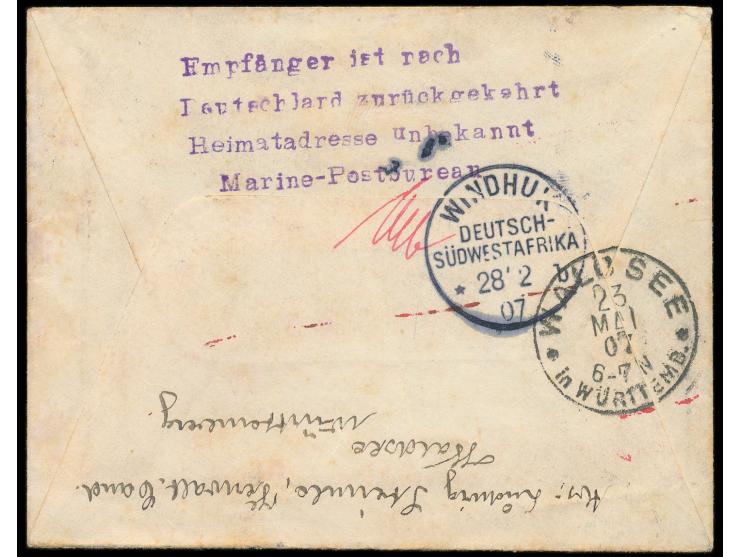 Empfänger ist nach
Deutschland zurückgekehrt
Heimatadresse unbekannt
Marine-Postbureau
WINDHUK
DEUTSCH-
SÜDWESTAFRIKA
* 28 2 b
07
WALDSEE
23
MAI
07
6-7 N
* in WÜRTTEMB. *
Ludwig Steinle, Verwalt. Cand.
Waldsee
Württemberg.